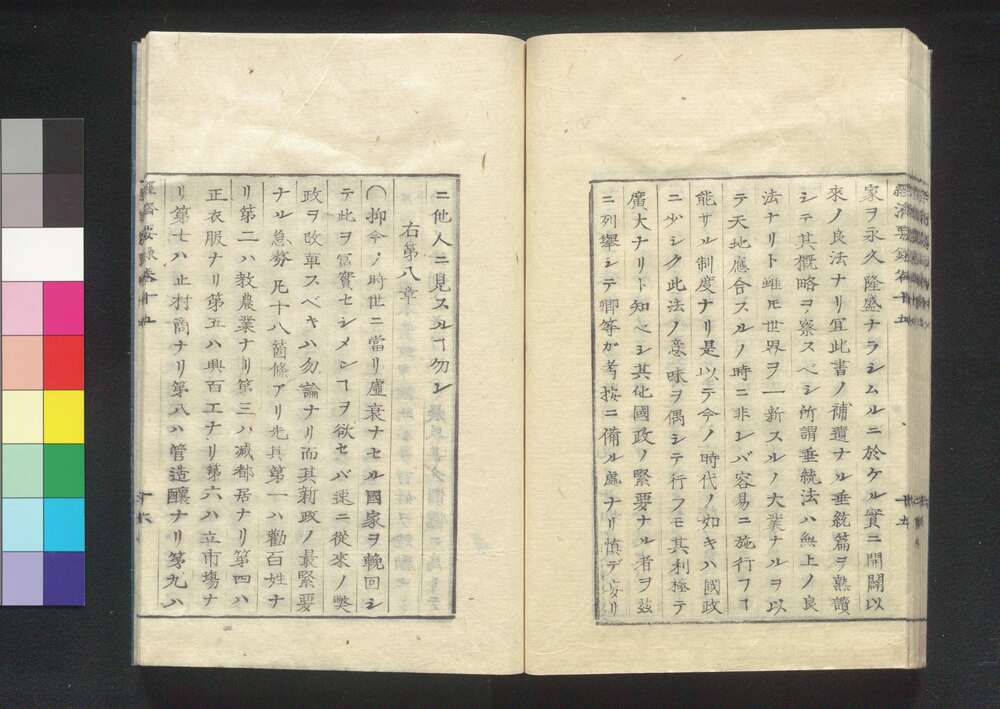 家ヲ永久隆盛ナラシムルニ於ケル實ニ開闢以
來ノ良法ナリ宜此書ノ補遺ナル垂統篇ヲ熟讀
シテ其概略ヲ察スベシ所謂垂統法ハ無上ノ良
法ナリト雖モ世界ヲ一新スルノ大業ナルヲ以
テ天地應合スルノ時ニ非レバ容易ニ施行フヿ
能ザル制度ナリ是以テ今ノ時代ノ如キハ國政
ニ少シク此法ノ意味ヲ偶シテ行フモ其利極テ
廣大ナリト知ベシ其他國政ノ緊要ナル者ヲ茲
ニ列擧シテ卿等ガ考按ニ備ル處ナリ慎デ妄リ
經濟要錄卷十五
十五
ニ他人ニ見スルヿ勿レ
右第八章
○抑今ノ時世ニ當リ虛衰ナセル國家ヲ輓回シ
テ此ヲ冨實セシメンヿヲ欲セバ速ニ從來ノ獘
政ヲ改革スベキハ勿論ナリ而其新政ノ最緊要
ナル急務凡十八箇條アリ先其第一ハ勸百姓ナ
リ第二ハ教農業ナリ第三ハ減都居ナリ第四ハ
正衣服ナリ第五ハ興百工ナリ第六ハ立市場ナ
リ第七ハ止村商ナリ第八ハ管造釀ナリ第九ハ
經濟要錄卷十五
十六